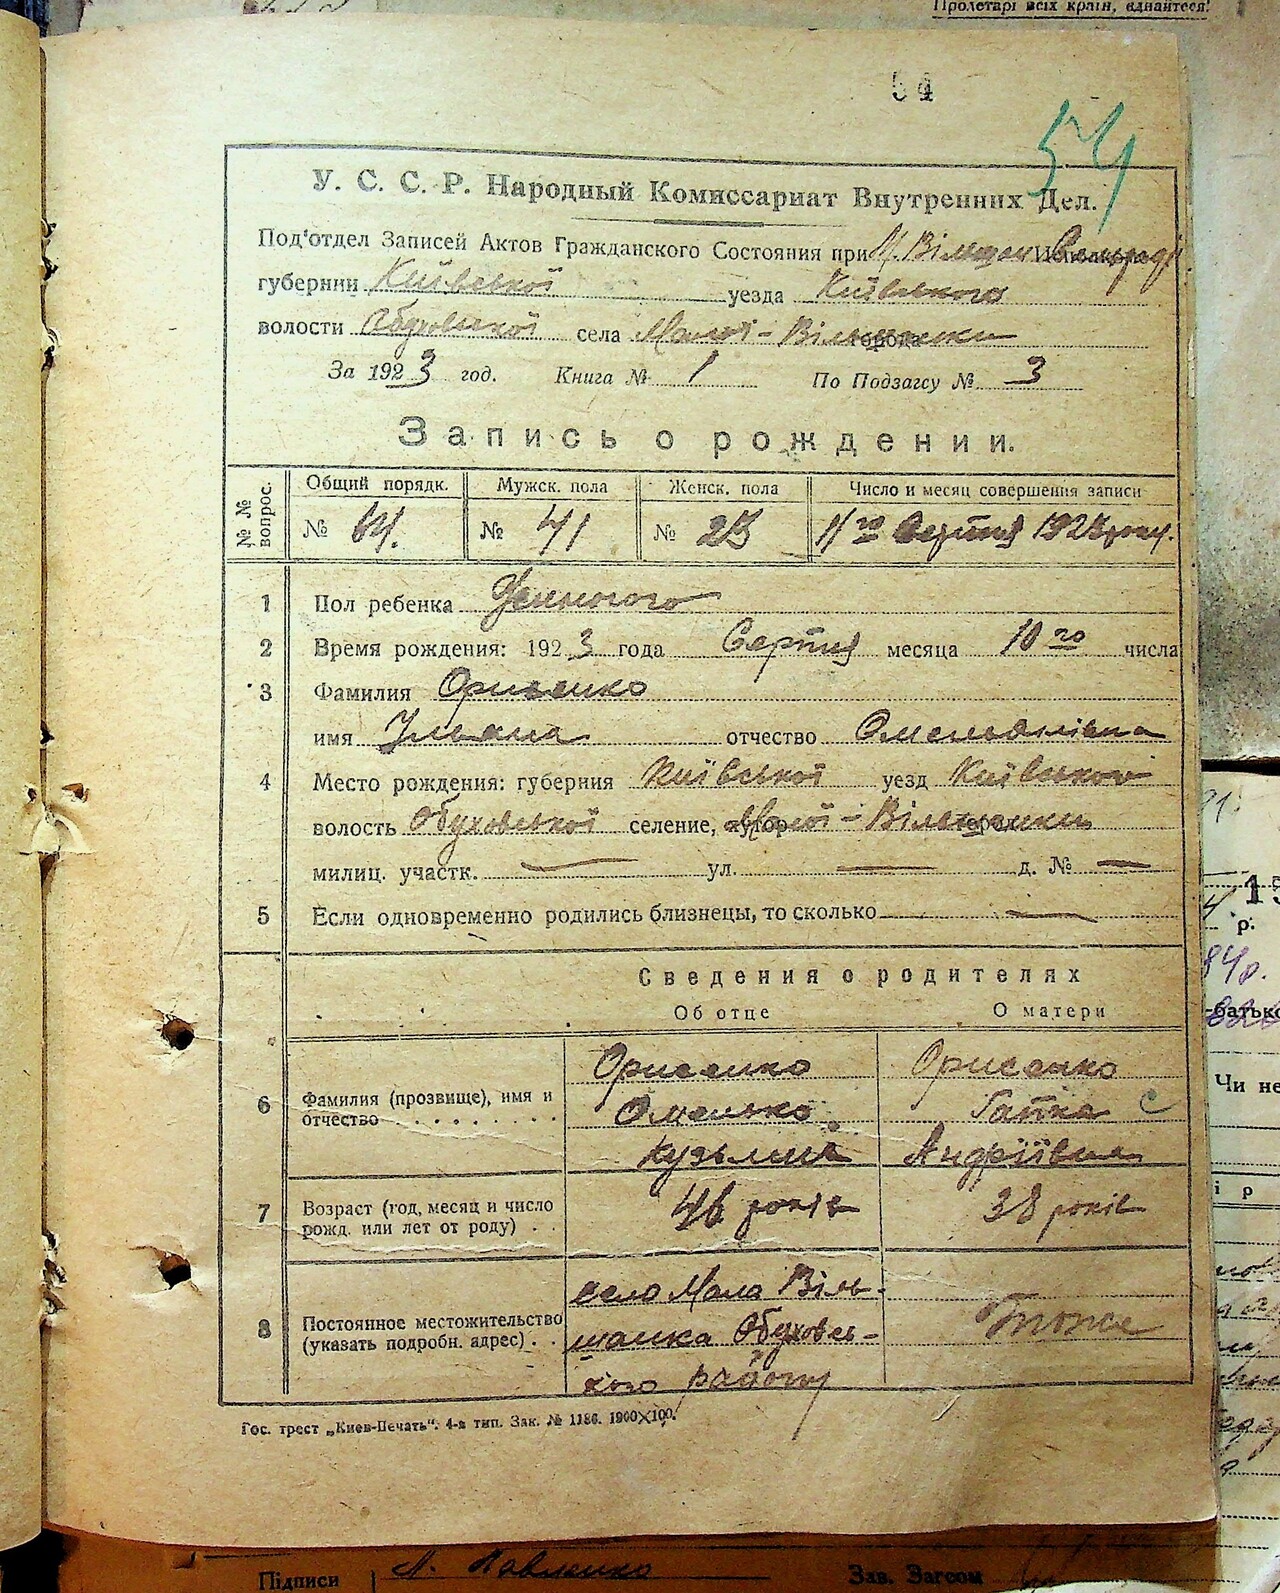 Пролетарі всіх країн, єднайтеся!
54
54
У. С. С. Р. Народный Комиссариат Внутренних Дел.
Под'отдел Записей Актов Гражданского Состояния при М. Вільшан
губернии Київської уезда Київського
волости Обухівської села Малої - Вільшанки
За 1923 год. Книга № 1 По Подзагсу № 3
Запись о рождении.
№ № вопрос. Общий порядк. Мужск. пола Женск. пола Число и месяц совершения записи
№ 64. № 41 № 23 11го Серпня 1923 року.
1 Пол ребенка Женського
2 Время рождения: 1923 года Серпня месяца 10го числа
3 Фамилия Орисенко
имя Уляна отчество Омелянівна
4 Место рождения: губерния Київської уезд Київського
волость Обуховської селение, Малої - Вільшанки
милиц. участк. — ул. — д. № —
5 Если одновременно родились близнецы, то сколько —
Сведения о родителях
Об отце О матери
6 Фамилия (прозвище), имя и отчество
Орисенко Орисенко
Омелько Гапка
Кузьмич Андріївна
7 Возраст (год, месяц и число рожд. или лет от роду) 46 років 38 років
8 Постоянное местожительство (указать подробн. адрес)
село Мала Віль-
шанка Обуховсь- Тоже
кого району
Гос. трест „Киев-Печать“. 4-я тип. Зак. № 1186. 1900×100.
р.
84р.
батько
Чи не
Підписи Павленко Зав. Загсом